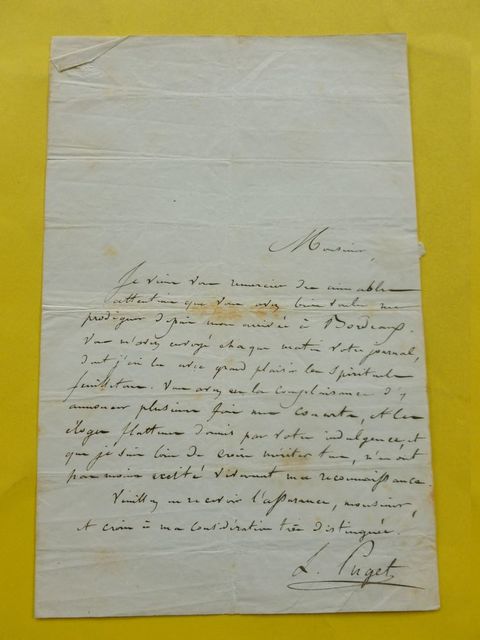 Monsieur,
Je viens vous remercier des aimables
attentions que vous avez bien voulu me
prodiguer depuis mon arrivée à Bordeaux.
Vous m'avez envoyé chaque matin votre journal,
dont j'ai lu avec grand plaisir les spirituels
feuilletons. Vous avez eu la complaisance d'y
annoncer plusieurs fois mes concerts, et les
éloges flatteurs dictés par votre indulgence, et
que je suis loin de croire mériter tous, n'en ont
pas moins excité vivement ma reconnaissance.
Veuillez en recevoir l'assurance, monsieur,
et croire à ma considération très distinguée.
L. Puget